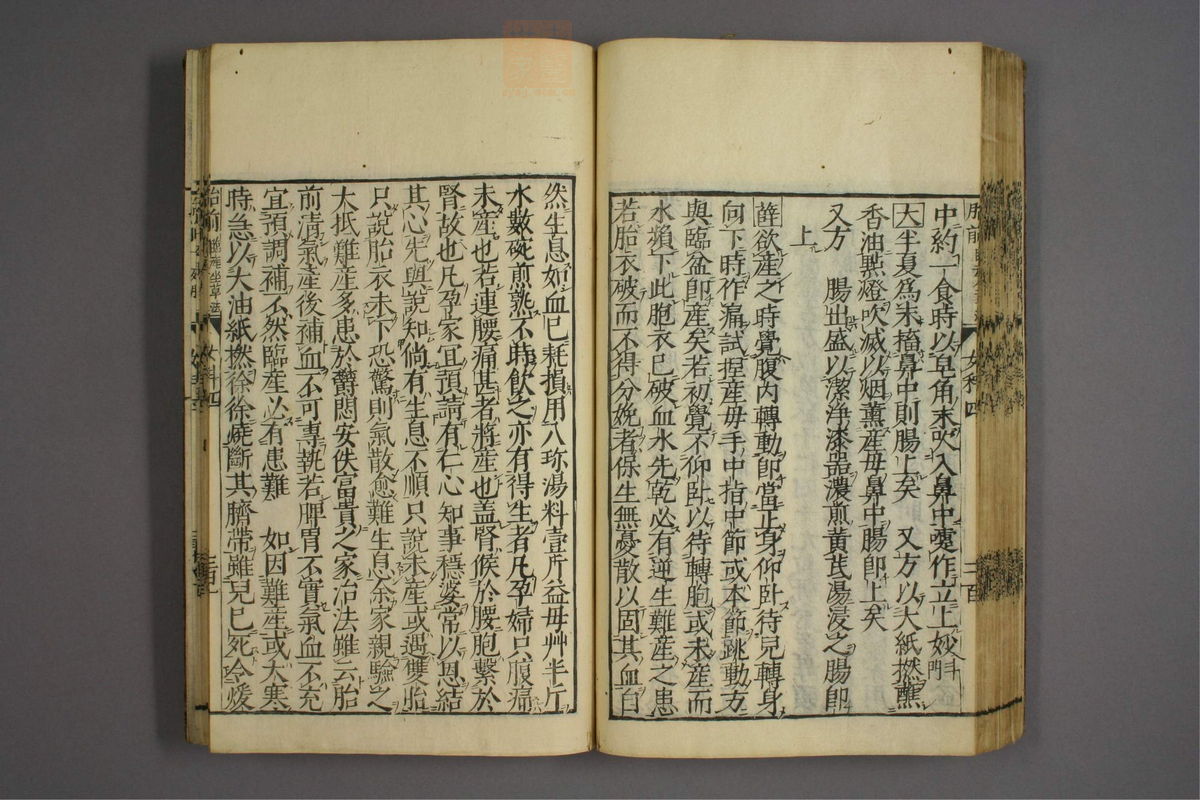 中約一食時以皁角末吹入鼻中嚏作立上妙斗門
大半夏爲末搐鼻中則腸上矣　又方以大紙撚蘸
香油㸃燈吹滅以烟薰産母鼻中腸卽上矣
又方　腸出盛以潔淨漆器濃煎黄芪湯浸之腸卽
上
薛欲産之時覺腹内轉動卽當正身仰卧待兒轉身
向下時作痛試捏産母手中指中節或本節跳動方
與臨盆卽産矣若初覺不仰卧以待轉胞或未産而
水頻下此胞衣已破血水先乾必有逆生難産之患
若胎衣破而不得分娩者保生無憂散以固其血自
然生息如血已耗損用八珍湯料壹斤益母艸半斤
水數碗煎熟不時飮之亦有得生者凡孕婦只腹痛
未産也若連腰痛甚者將産也盖腎候於腰胞繫於
腎故也凡孕家宜預請有仁心知事穩婆常以恩結
其心先與說知倘有生息不順只說未産或遇雙胎
只說胎衣未下恐驚則氣散愈難生息余家親驗之
大抵難産多患於欝悶安佚富貴之家治法雖云胎
前清氣産後補血不可專執若脾胃不實氣血不充
宜預調補不然臨産必有患難　如因難産或大寒
時急以大油紙撚徐徐燒斷其臍帶雖兒已死令煖
胎前
女科四